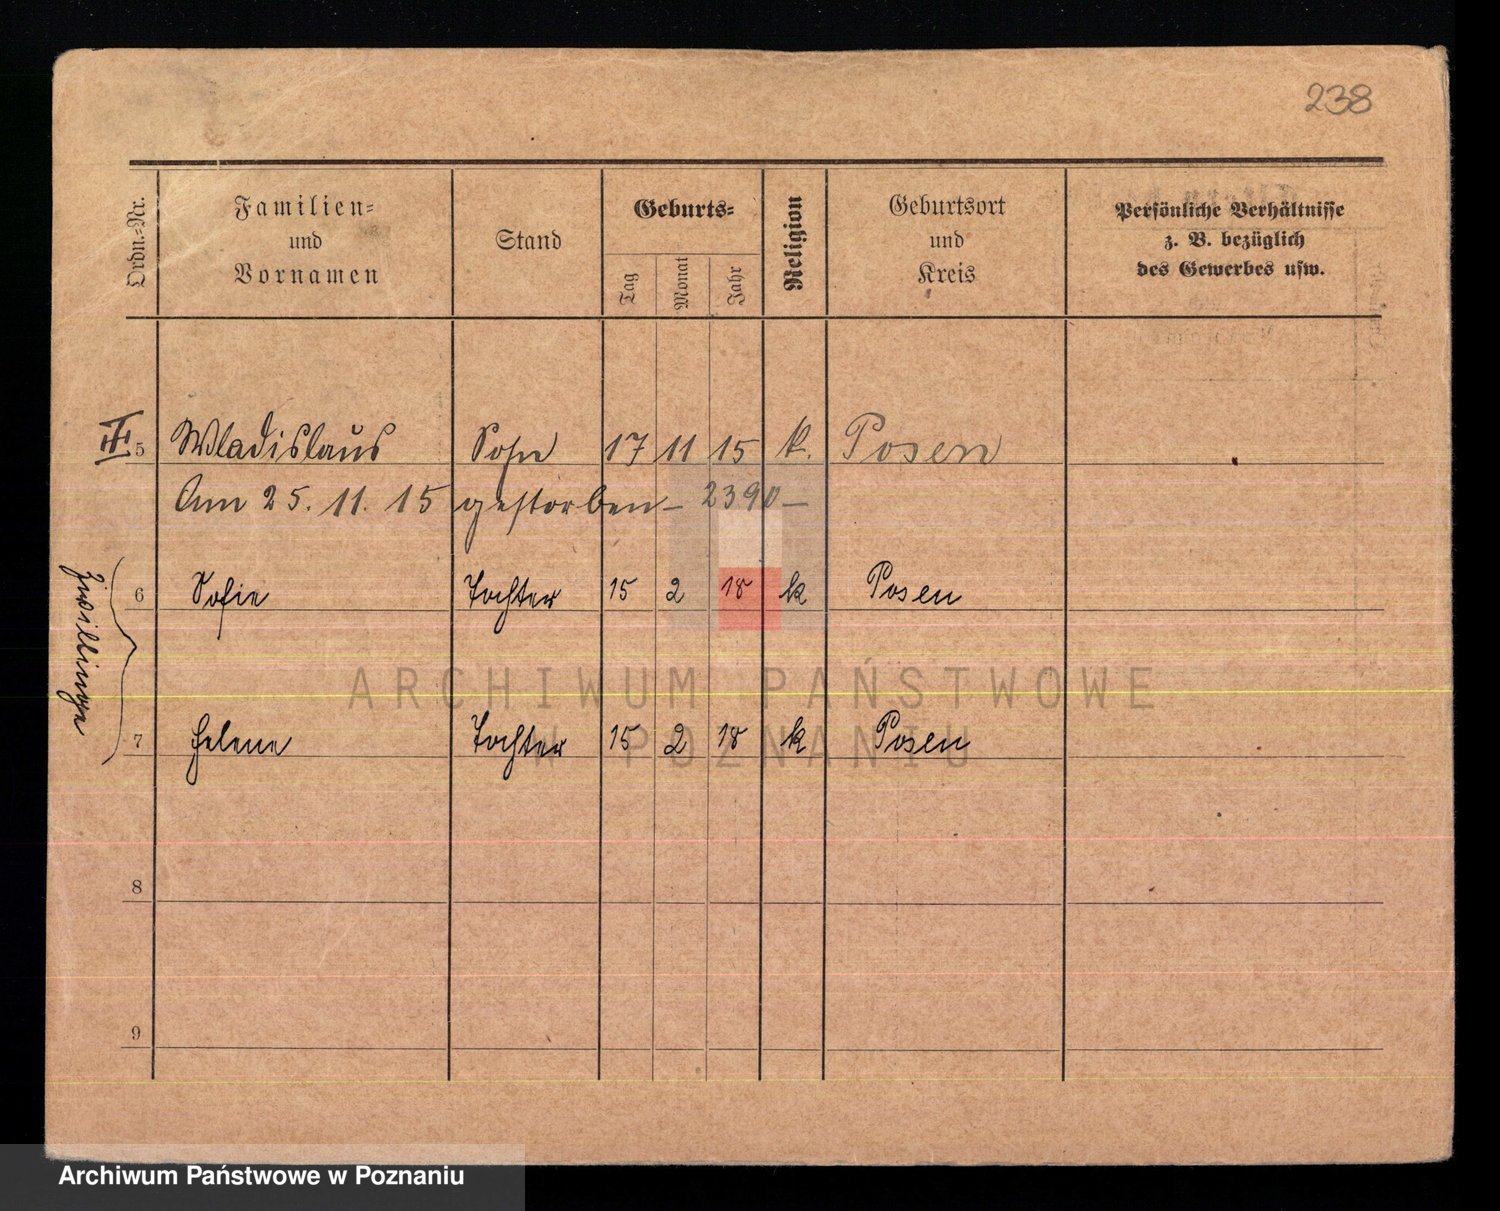 238
Ordn.-Nr.
Familien-
und
Vornamen
Stand
Geburts-
Tag
Monat
Jahr
Religion
Geburtsort
und
Kreis
Persönliche Verhältnisse
z. B. bezüglich
des Gewerbes usw.
5 Wladislaus Sohn 17 11 15 k. Posen
Am 25. 11. 15 gestorben – 2390 –
Zwillinge
6 Sofie Tochter 15 2 18 k Posen
ARCHIWUM PAŃSTWOWE
W POZNANIU
7 Helene Tochter 15 2 18 k Posen
8
9
Archiwum Państwowe w Poznaniu